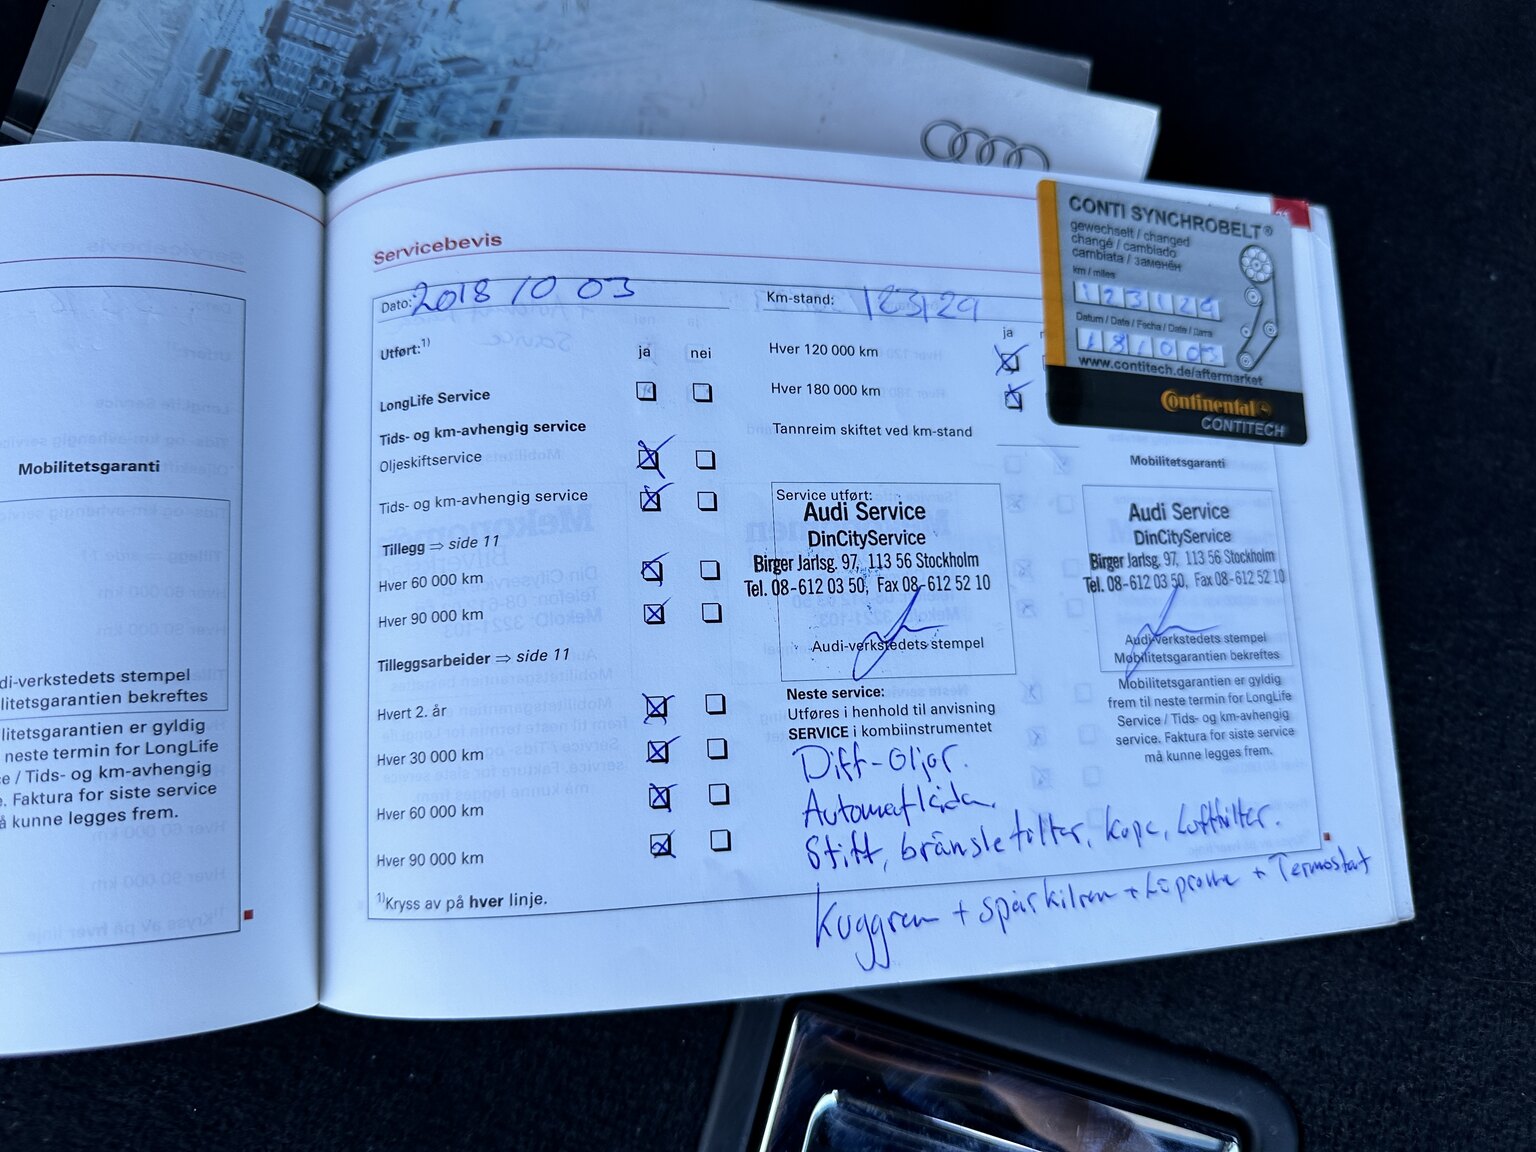 Servicebevis
Dato: 2018 10 03
Km-stand: 123129
Utført:1)
ja nei
LongLife Service
Tids- og km-avhengig service
Oljeskiftservice
Tids- og km-avhengig service
Tillegg ⇒ side 11
Hver 60 000 km
Hver 90 000 km
Tilleggsarbeider ⇒ side 11
Hvert 2. år
Hver 30 000 km
Hver 60 000 km
Hver 90 000 km
1)Kryss av på hver linje.
ja
Hver 120 000 km
Hver 180 000 km
Tannreim skiftet ved km-stand
Service utført:
Audi Service
DinCityService
Birger Jarlsg. 97, 113 56 Stockholm
Tel. 08-612 03 50, Fax 08-612 52 10
Audi-verkstedets stempel
Neste service:
Utføres i henhold til anvisning
SERVICE i kombiinstrumentet
Diff-oljor.
Automatlåda.
Stift, bränslefilter, kupe, Luftfilter.
Kuggrem + spårkilrem + + Termostat
Mobilitetsgaranti
Audi Service
DinCityService
Birger Jarlsg. 97, 113 56 Stockholm
Tel. 08-612 03 50, Fax 08-612 52 10
Audi-verkstedets stempel
Mobilitetsgarantien bekreftes
Mobilitetsgarantien er gyldig
frem til neste termin for LongLife
Service / Tids- og km-avhengig
service. Faktura for siste service
må kunne legges frem.
CONTI SYNCHROBELT®
gewechselt / changed
changé / cambiado
cambiata / заменён
km / miles
123129
Datum / Date / Fecha / Date / Дата
181003
www.contitech.de/aftermarket
Continental
CONTITECH
Mobilitetsgaranti
di-verkstedets stempel
litetsgarantien bekreftes
litetsgarantien er gyldig
neste termin for LongLife
ce / Tids- og km-avhengig
e. Faktura for siste service
å kunne legges frem.